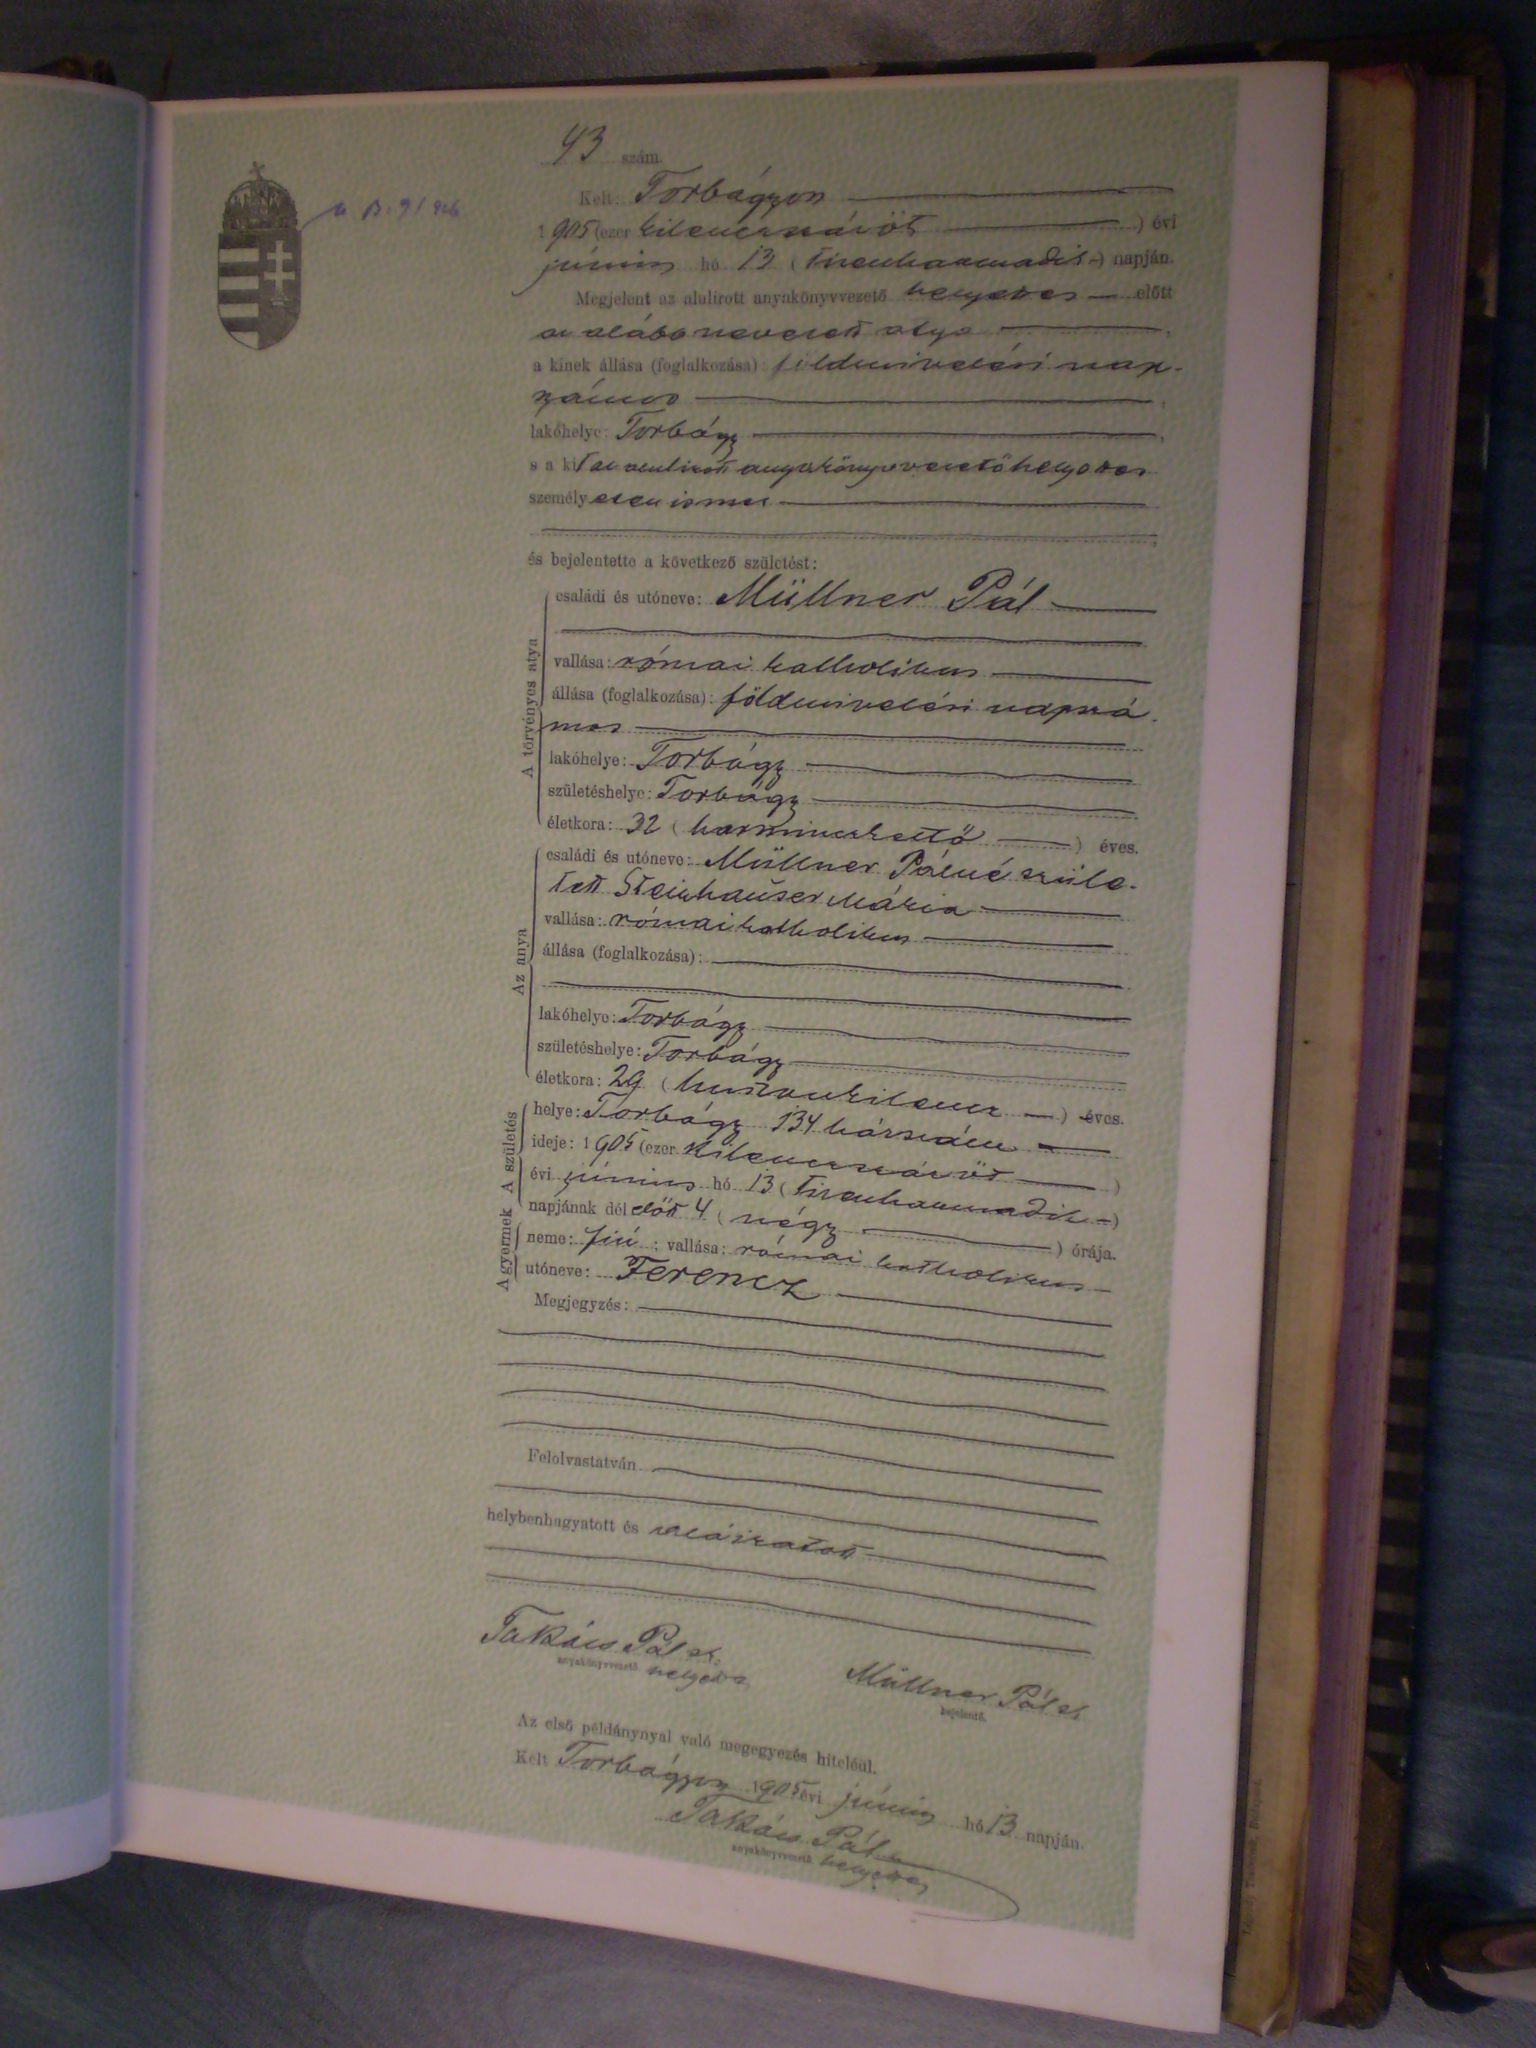 43 szám.
Kelt: Torbágyon
1905 (ezer kilenczszázöt ) évi
június hó 13 (tizenharmadik) napján.
Megjelent az alulirott anyakönyvvezető helyettes előtt
az alább nevezett atya,
a kinek állása (foglalkozása): földmivelési nap-
számos,
lakóhelye: Torbágy,
s a kit az alulirott anyakönyvvezető helyettes
személyesen ismer
;
és bejelentette a következő születést:
A törvényes atya
családi és utóneve: Müllner Pál
vallása: római katholikus
állása (foglalkozása): földmivelési napszá-
mos
lakóhelye: Torbágy
születéshelye: Torbágy
életkora: 32 (harminczkettő ) éves.
Az anya
családi és utóneve: Müllner Pálné szüle-
tett Steinhauser Mária
vallása: római katholikus
állása (foglalkozása):
lakóhelye: Torbágy
születéshelye: Torbágy
életkora: 29 (huszonkilencz ) éves.
A születés
helye: Torbágy 134 házszám
ideje: 1905 (ezer kilenczszázöt )
évi június hó 13 (tizenharmadik )
napjának délelőtt 4 (négy ) órája.
A gyermek
neme: fiú; vallása: római katholikus
utóneve: Ferencz
Megjegyzés:
Felolvastatván
helybenhagyatott és aláiratott
Takács Pál sk.
anyakönyvvezető helyettes
Müllner Pál sk.
bejelentő.
Az első példánynyal való megegyezés hiteléül.
Kelt Torbágyon 1905 évi június hó 13 napján.
Takács Pál
anyakönyvvezető helyettes